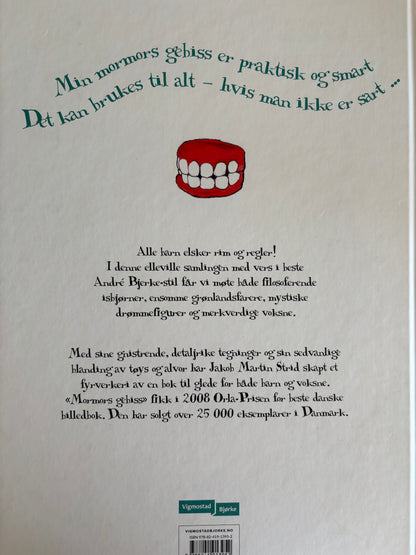 Min mormors gebiss er praktisk og smart
Det kan brukes til alt – hvis man ikke er sart ...
Alle barn elsker rim og regler!
I denne elleville samlingen med vers i beste
André Bjerke-stil får vi møte både filosoferende
isbjørner, ensomme grønlandsfarere, mystiske
drømmefigurer og merkverdige voksne.
Med sine gnistrende, detaljrike tegninger og sin sedvanlige
blanding av tøys og alvor har Jakob Martin Strid skapt et
fyrverkeri av en bok til glede for både barn og voksne.
«Mormors gebiss» fikk i 2008 Orla-Prisen for beste danske
billedbok. Den har solgt over 25 000 eksemplarer i Danmark.
Vigmostad
Bjørke
VIGMOSTADBJORKE.NO